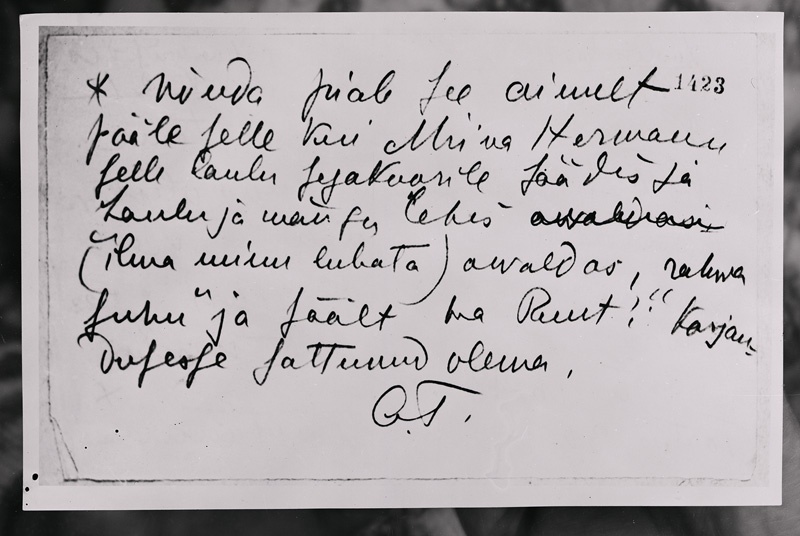 * nõnda piab see aimelt 1423
pääle selle kui Miina Hermann
selle laulu segakoorile säädis ja
Laulu ja mängu lehes awaldas
(ilma minu lubata) awaldas, rahwa
suhu" ja säält ka Ruut?" Karjan-
dusesse sattunud olema.
A.T.